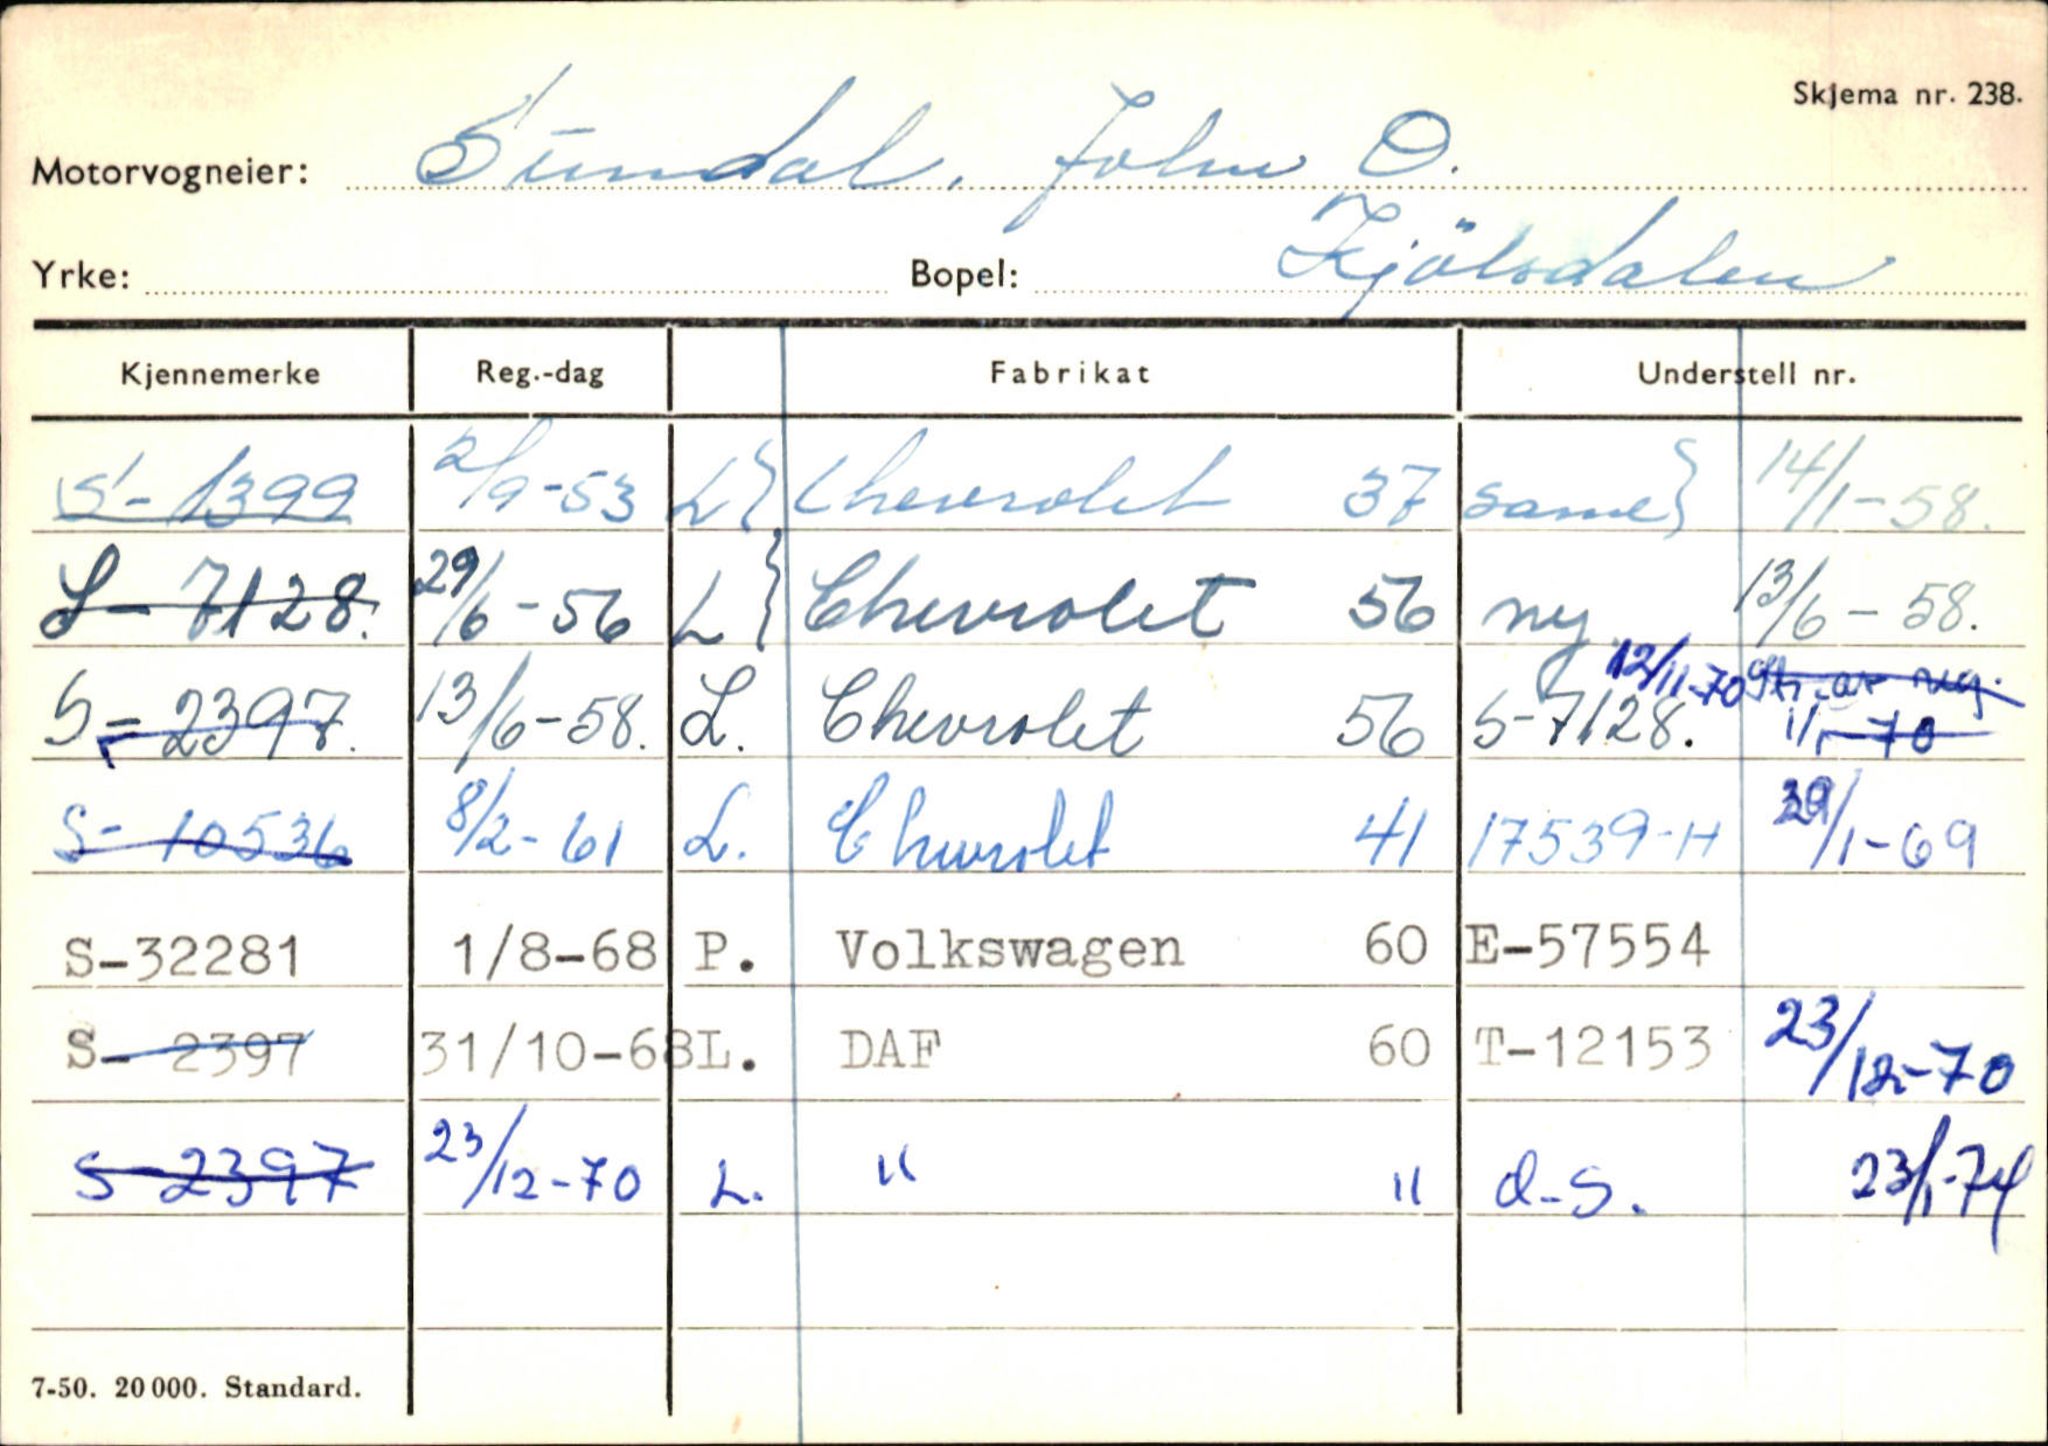 Skjema nr. 238.
Motorvogneier: Sundal, John O.
Yrke: Bopel: Kjölsdalen
Kjennemerke Reg.-dag Fabrikat Understell nr.
S-1399 2/9-53 L} Chevrolet 37 same} 14/1-58.
S-7128. 29/6-56 L} Chevrolet 56 ny 13/6-58.
S-2397. 13/6-58. L. Chevrolet 56 S-7128. 12/11-70 Str. av reg. 1/1-70
S-10536 8/2-61 L. Chevrolet 41 17539-H 29/1-69
S-32281 1/8-68 P. Volkswagen 60 E-57554
S- 2397 31/10-68 L. DAF 60 T-12153 23/12-70
S-2397 23/12-70 L. " " d-s. 23/1-74
7-50. 20 000. Standard.